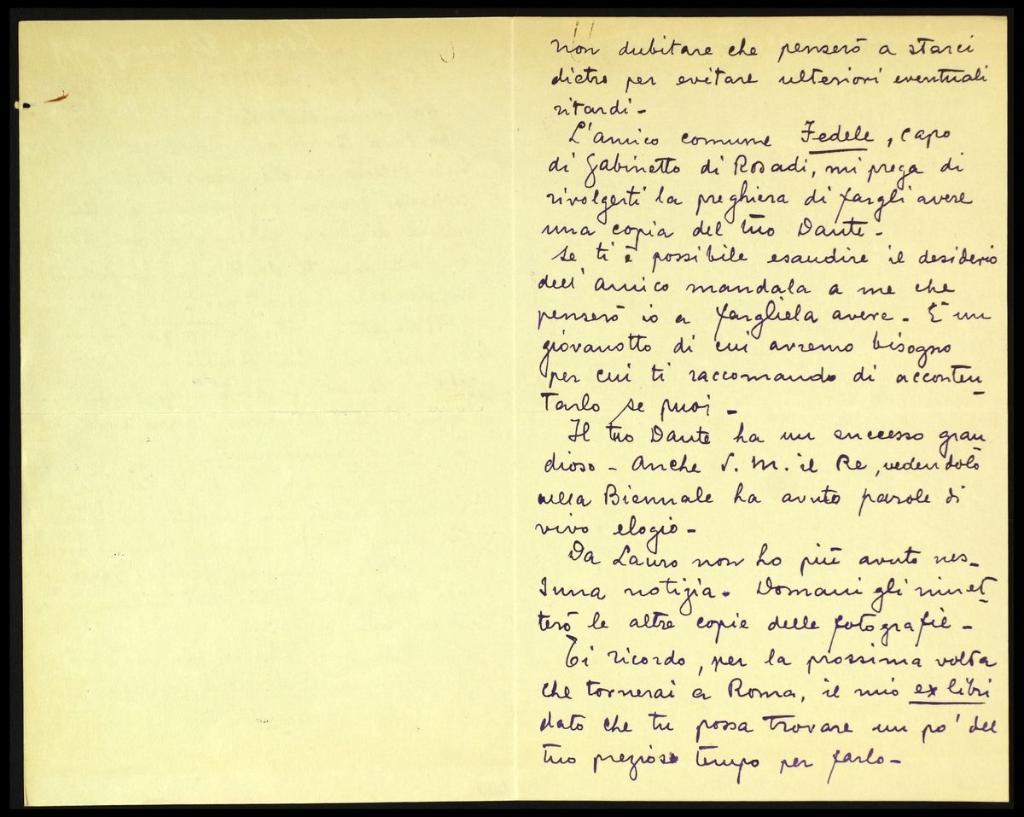 non dubitare che penserò a starci
dietro per evitare ulteriori eventuali
ritardi -
L'amico comune Fedele, capo
di Gabinetto di Rosadi, mi prega di
rivolgerti la preghiera di fargli avere
una copia del tuo Dante -
Se ti è possibile esaudire il desiderio
dell'amico mandala a me che
penserò io a fargliela avere - È un
giovanotto di cui avremo bisogno
per cui ti raccomando di acconten-
tarlo se puoi -
Il tuo Dante ha un successo gran
dioso - Anche S. M. il Re, vedendolo
nella Biennale ha avuto parole di
vivo elogio -
Da Lauro non ho più avuto nes-
suna notizia. Domani gli rimet-
terò le altre copie delle fotografie -
Ti ricordo, per la prossima volta
che tornerai a Roma, il mio ex libri
dato che tu possa trovare un po' del
tuo prezioso tempo per farlo -